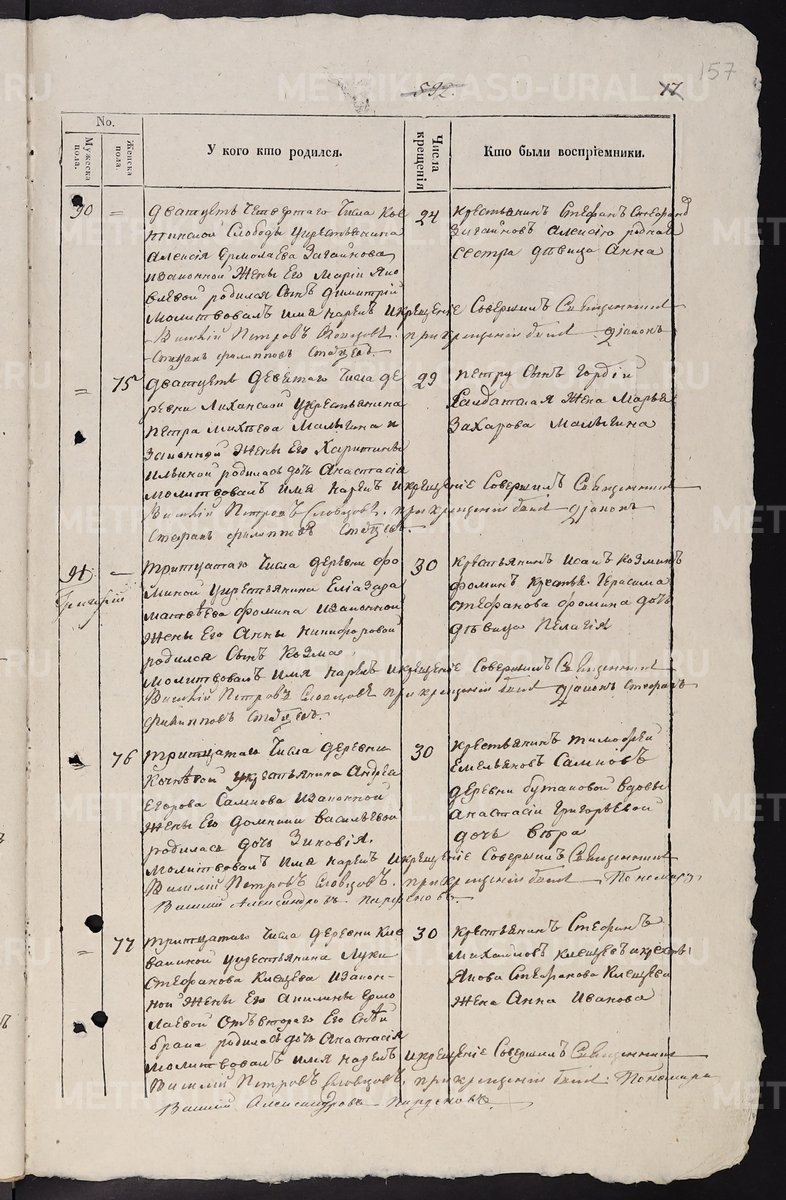 157
592.
17
No.
Мужеска пола.
Женска пола.
У кого кто родился.
Числа крещенія
Кто были воспріемники.
90 = дватцеть четвертаго числа
тинской слободы у крестьянина
Алексія Ермолаева Загайнова
и законной жены его Маріи Яко
влевой родился сынъ Димитрій
молитвовалъ имя нарекъ и крещеніе совершилъ священникъ
Василій Петровъ Словцовъ. при крещеніи былъ діаконъ
Стефанъ Филипповъ
24 крестьянинъ Стефанъ Стефанов
Загайновъ Алексію родная
сестра дѣвица Анна
= 75 дватцеть девятаго числа де
ревни Лиханской у крестьянина
Петра Малыгина и
законной жены его Харитины
Ильиной родилась дочь Анастасія
молитвовалъ имя нарекъ и крещеніе совершилъ священникъ
Василій Петровъ Словцовъ. при крещеніи былъ діаконъ
Стефанъ Филипповъ
29 Петру сынъ Гордій
салдатская жена Марья
Захарова Малыгина
91. = тритцатаго числа деревни Фо
миной у крестьянина Еліазара
Матвѣева Фомина и законной
жены его Анны Никифоровой
родился сынъ Козма.
молитвовалъ имя нарекъ и крещеніе совершилъ священникъ
Василій Петровъ Словцовъ при крещеніи былъ діаконъ Стефанъ
Филипповъ
30 крестьянинъ Исакъ Козминъ
Фоминъ крестья. Герасима
Стефанова Фомина дочь
дѣвица Пелагія
= 76 тритцатаго числа деревни
у крестьянина Андрея
Егорова Самкова и законной
жены его Домники Васильевой
родилась дочь Зиновія.
молитвовалъ имя нарекъ и крещеніе совершилъ священникъ
Василій Петровъ Словцовъ. при крещеніи былъ Пономарь
Василій Александровъ Парфеновъ.
30 крестьянинъ Тимофей
Емельяновъ Самковъ
деревни Бутаковой вдовы
Анастасіи Григорьевой
дочь Вѣра
= 77 тритцатаго числа деревни Кле
вакиной у крестьянина Луки
Стефанова Клещева и закон-
ной жены его Акилины Ермо
лаевой отъ втораго его сѣй
брака родилась дочь Анастасія
молитвовалъ имя нарекъ и крещеніе совершилъ священникъ
Василій Петровъ Словцовъ. при крещеніи былъ Пономарь
Василій Александровъ Парфеновъ.
30 крестьянинъ Стефанъ
Михайловъ Клещевъ и крестья:
Якова Стефанова Клещева
жена Анна Иванова